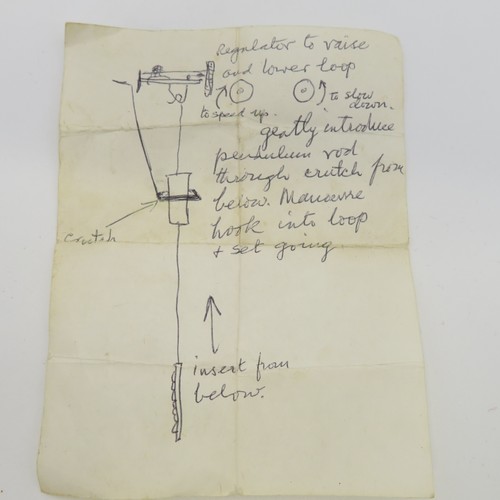 Regulator to raise
and lower loop
to speed up.
to slow
down.
gently introduce
pendulum rod
through crutch from
below. Manouvre
hook into loop
+ set going
crutch
insert from
below.